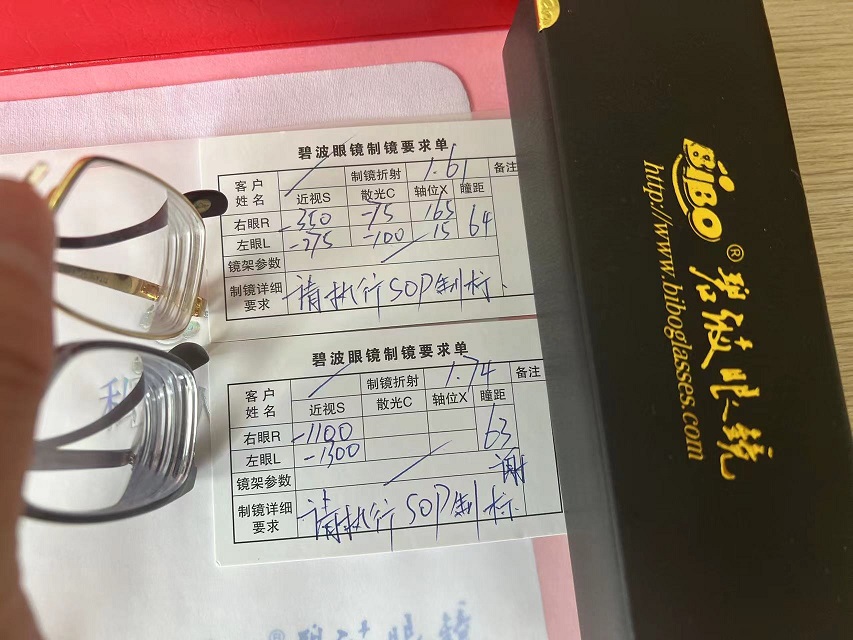 碧波眼镜制镜要求单
客户姓名 制镜折射 1.61 备注
近视S 散光C 轴位X 瞳距
右眼R -350 -75 165 64
左眼L -275 -100 15
镜架参数
制镜详细要求 请执行SOP制标.
碧波眼镜制镜要求单
客户姓名 制镜折射 1.74 备注
近视S 散光C 轴位X 瞳距
右眼R -1100 63
左眼L -1300
镜架参数 谢
制镜详细要求 请执行SOP制标.
BiBO® 碧波眼镜
http://www.biboglasses.com